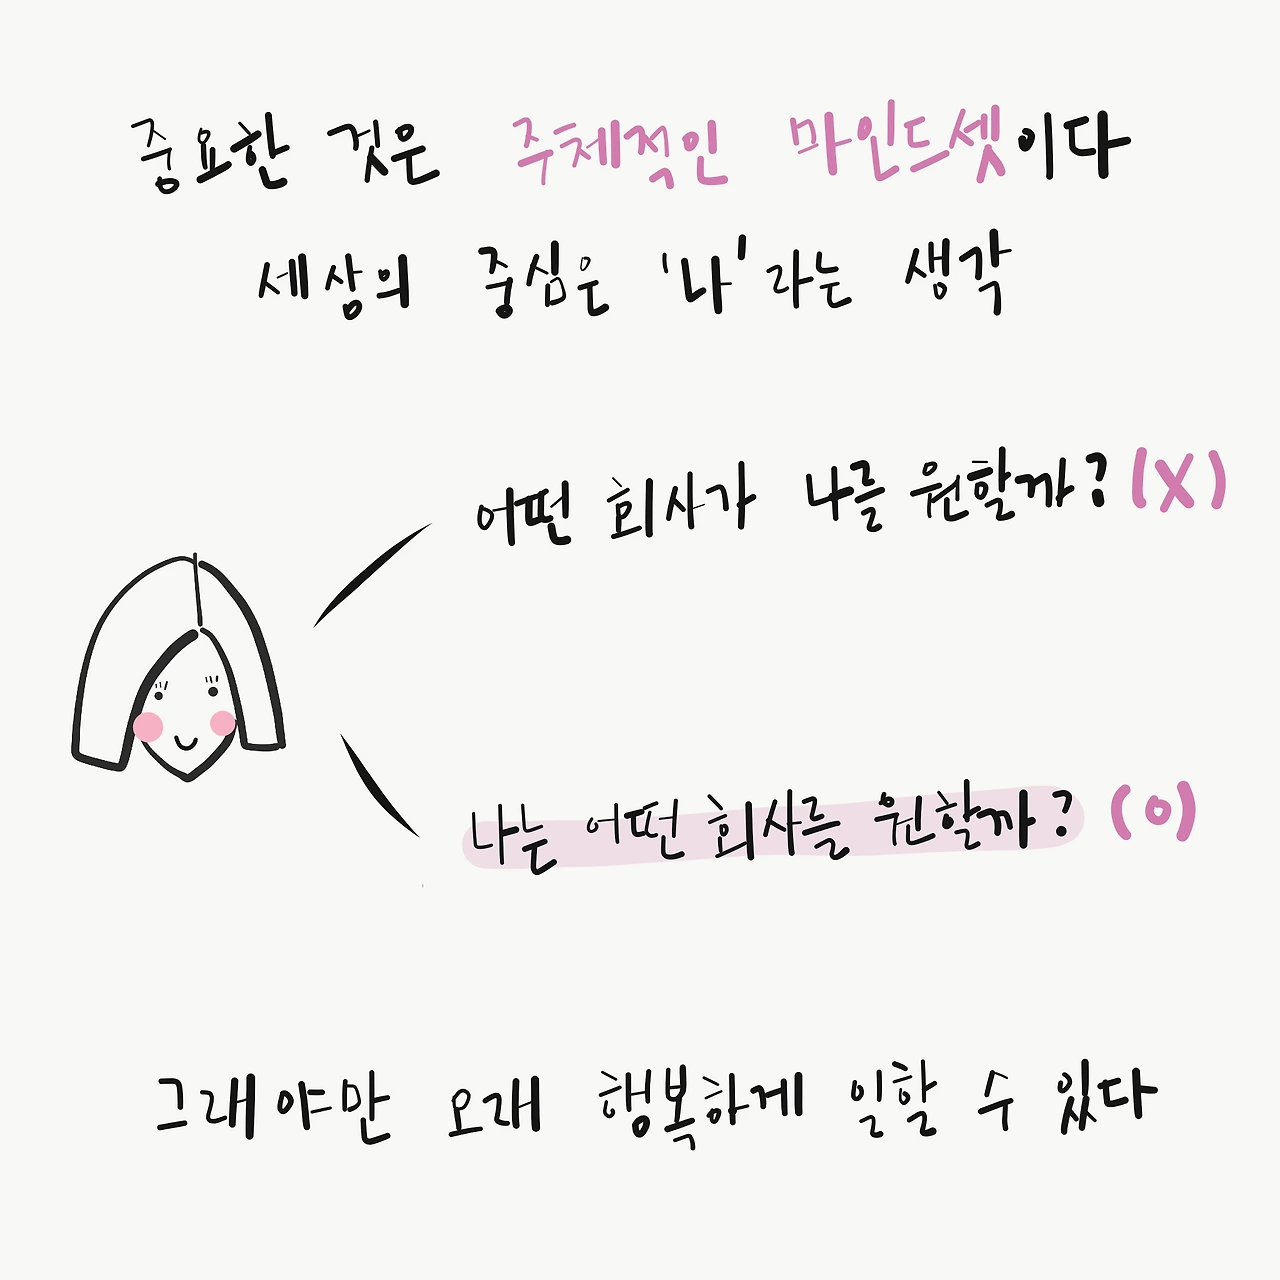 중요한 것은 주체적인 마인드셋이다
세상의 중심은 '나'라는 생각
어떤 회사가 나를 원할까? (X)
나는 어떤 회사를 원할까? (O)
그래야만 오래 행복하게 일할 수 있다